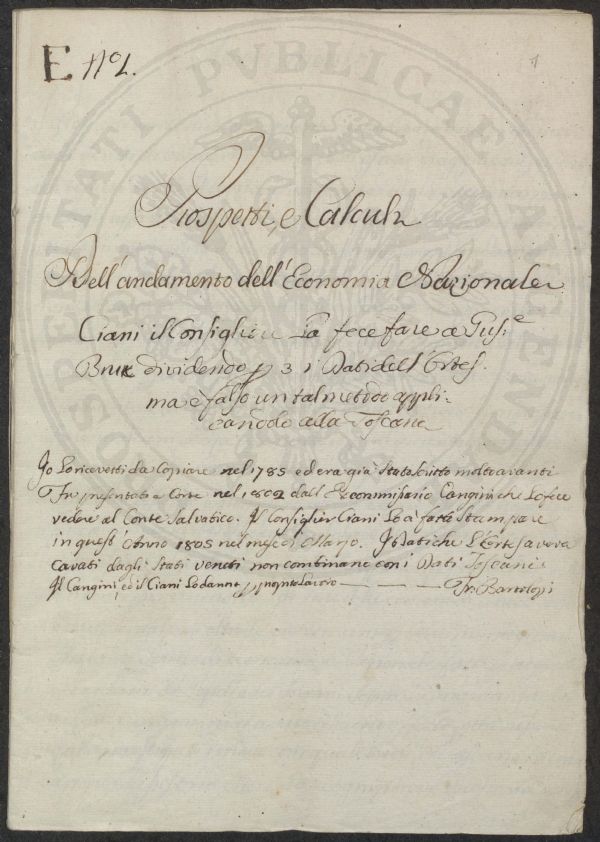 E nº1.
1
Prospetti, e Calcoli
Dell'andamento dell'Economia Nazionale
Ciani il Consigliere La fece fare a Gus.e
dividendo p 3 i Dati dell'Ortes.
ma è falso un tal metodo appli-
candolo alla Toscana
Jo Lo ricevetti da Copiare nel 1785 ed era già stato scritto molto avanti
Fu presentato a Corte nel 1802 dall' Economissario Cangini che Lo fece
vedere al Conte Salvatico. Il Consiglier Ciani Lo à fatto Stampare
in quest'Anno 1805 nel mese di Marzo. I Dati che L'Ortes aveva
Cavati dagli Stati veneti non combinano con i Dati Toscani
Il Cangini, ed il Ciani Lodanno Lavoro — — — Bartolozzi
PROSPERITATI PVBLICAE AVGENDAE